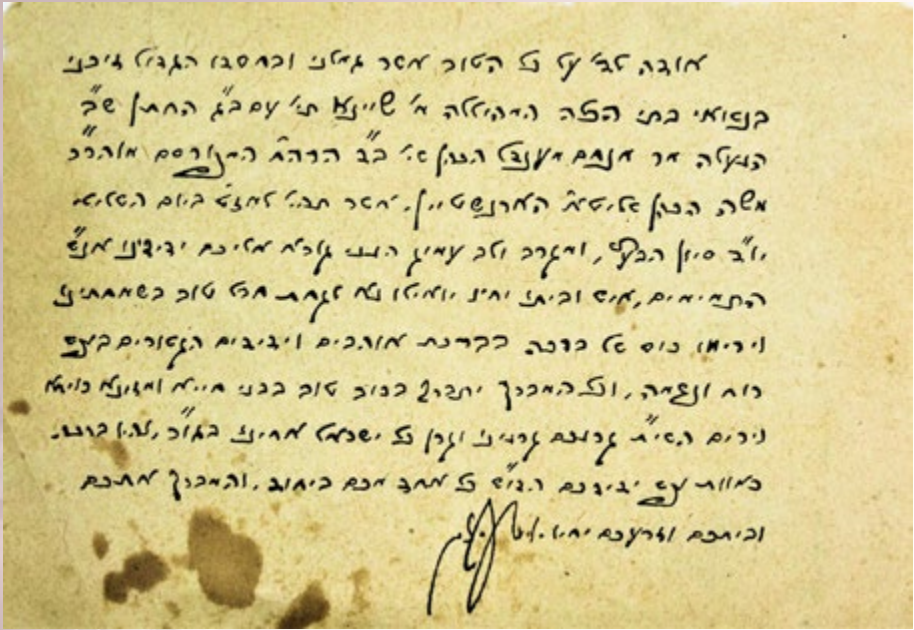 אודה לה' על כל הטוב אשר גמלני ובחסדו הגדול זיכני
בנשואי בתי הכלה המהוללה מ' שיינא תי' עם ב"ג החתן שב"
הנעלה מר מנחם מענדל הכהן שי' ב"ב הרה"ח המפורסם מוהר"ר
משה הכהן שליט"א הארנשטיין. אשר תהי' למזל"ט ביום השלישי
י"ב סיון הבע"ל, ומקרב ולב עמוק הנני קורא אליכם ידידינו אנ"ש
התמימים, איש וביתו יחיו יואילו נא לקחת חבל טוב בשמחתינו
וירימו כוס של ברכה בברכת אוהבים וידידים הקשורים בעצם
רוח ונשמה, וכל המברך יתברך בכל טוב בבני חייא ומזונא רויחא
וירים השי"ת קרנכם קרנינו וקרן כל ישראל אחינו בגו"ר
כאוות נפש ידידכם הדו"ש כל אחד מכם ביחוד, והמברך אתכם
וביתכם וזרעכם יחיו